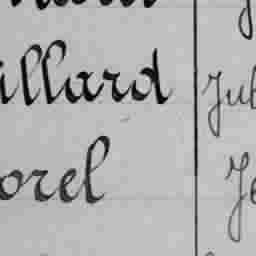 illard Jul
orel Je